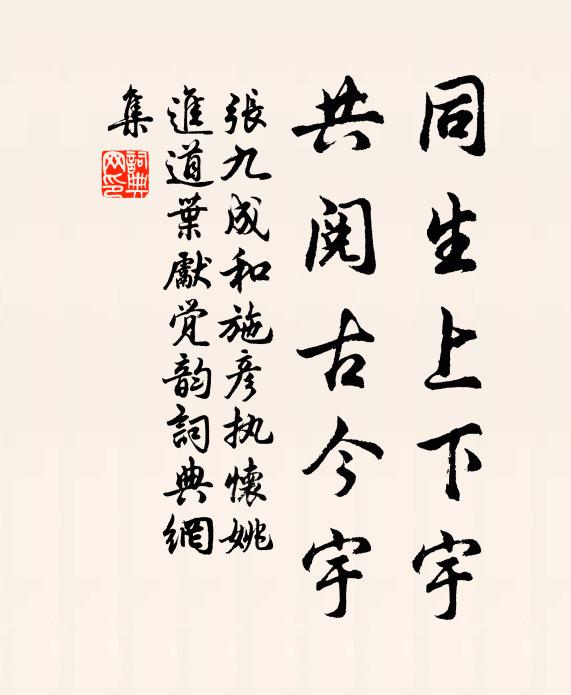 同生上下宇
共阅古今宇
張九成和施彦执懷姚
進道葉獻觉韵詞典網
集
詞典
网印